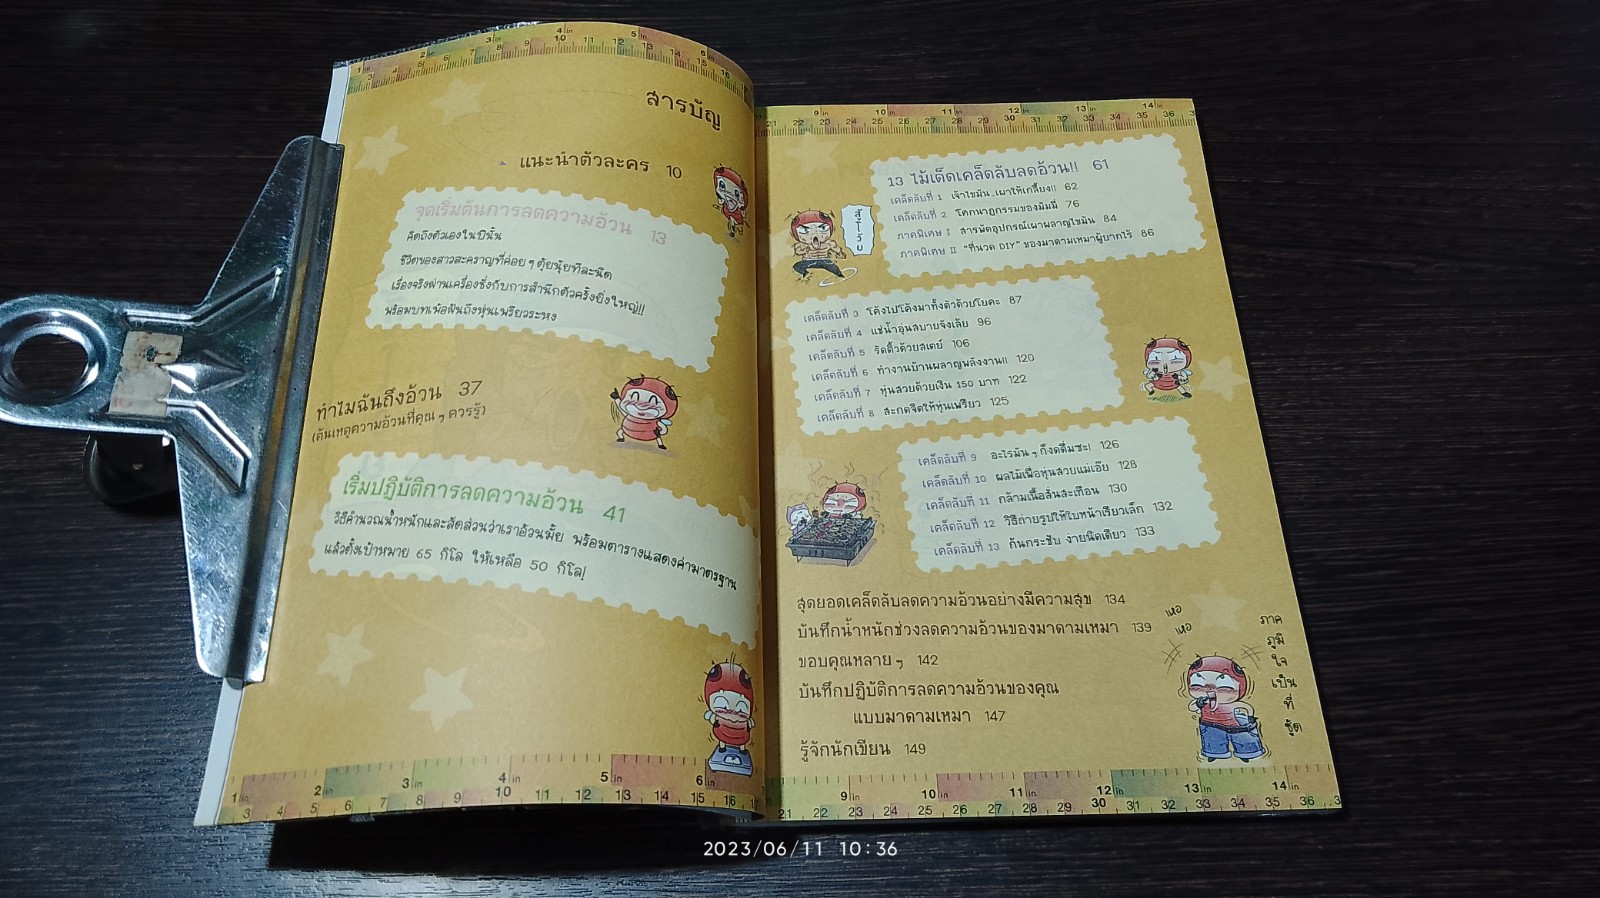 สารบัญ
แนะนำตัวละคร 10
จุดเริ่มต้นการลดความอ้วน 13
คิดถึงตัวเองในปีนั้น
ชีวิตของสาวสะคราญที่ค่อย ๆ ตุ้ยนุ้ยทีละนิด
เรื่องจริงผ่านเครื่องชั่งกับการสำนึกตัวครั้งยิ่งใหญ่!!
พร้อมบทเพ้อฝันถึงหุ่นเพรียวระหง
ทำไมฉันถึงอ้วน 37
(ต้นเหตุความอ้วนที่คุณ ๆ ควรรู้)
เริ่มปฏิบัติการลดความอ้วน 41
วิธีคำนวณน้ำหนักและสัดส่วนว่าเราอ้วนมั้ย พร้อมตารางแสดงค่ามาตรฐาน
แล้วตั้งเป้าหมาย 65 กิโล ให้เหลือ 50 กิโล!
13 ไม้เด็ดเคล็ดลับลดอ้วน!! 61
เคล็ดลับที่ 1 เจ้าไขมัน..เผาให้เกลี้ยง!! 62
เคล็ดลับที่ 2 โศกนาฏกรรมของมัมมี่ 76
ภาคพิเศษ I สารพัดอุปกรณ์เผาผลาญไขมัน 84
ภาคพิเศษ II "ที่นวด DIY" ของมาดามเหมาผู้ยากไร้ 86
สู้โว้ย
เคล็ดลับที่ 3 โค้งไปโค้งมาทั้งตัวด้วยโยคะ 87
เคล็ดลับที่ 4 แช่น้ำอุ่นสบายจังเลัย 96
เคล็ดลับที่ 5 รัดติ้วด้วยสเตย์ 106
เคล็ดลับที่ 6 ทำงานบ้านผลาญพลังงาน!! 120
เคล็ดลับที่ 7 หุ่นสวยด้วยเงิน 150 บาท 122
เคล็ดลับที่ 8 สะกดจิตให้หุ่นเพรียว 125
เคล็ดลับที่ 9 อะไรมัน ๆ ก็งดดื่มซะ! 126
เคล็ดลับที่ 10 ผลไม้เพื่อหุ่นสวยแม่เอ๊ย 128
เคล็ดลับที่ 11 กล้ามเนื้อสั่นสะเทือน 130
เคล็ดลับที่ 12 วิธีถ่ายรูปให้ใบหน้าเรียวเล็ก 132
เคล็ดลับที่ 13 ก้นกระชับ ง่ายนิดเดียว 133
สุดยอดเคล็ดลับลดความอ้วนอย่างมีความสุข 134
บันทึกน้ำหนักช่วงลดความอ้วนของมาดามเหมา 139
ขอบคุณหลาย ๆ 142
บันทึกปฏิบัติการลดความอ้วนของคุณ
แบบมาดามเหมา 147
รู้จักนักเขียน 149
เหอ
เหอ
ภาค
ภูมิ
ใจ
เป็น
ที่
ซู้ด
2023/06/11 10:36